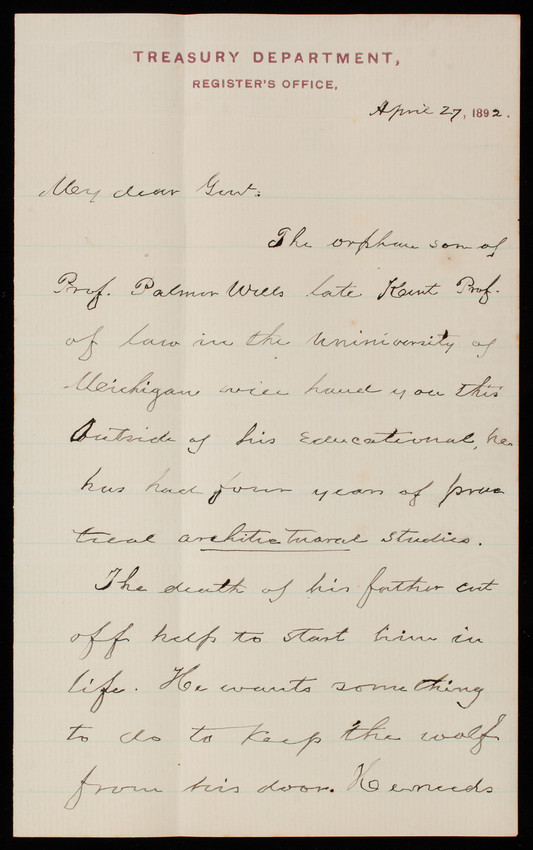 TREASURY DEPARTMENT,
REGISTER'S OFFICE,
April 27, 1892.
My dear Genl:
The orphan son of
Prof. Palmer Wells late Kent Prof.
of law in the Unini​versity of
Michigan will hand you this
Outside of his educational, he
has had four years of prac
tical architectural studies.
The death of his father cut
off help to start him in
life. He wants something
to do to keep the wolf
from his door. He needs